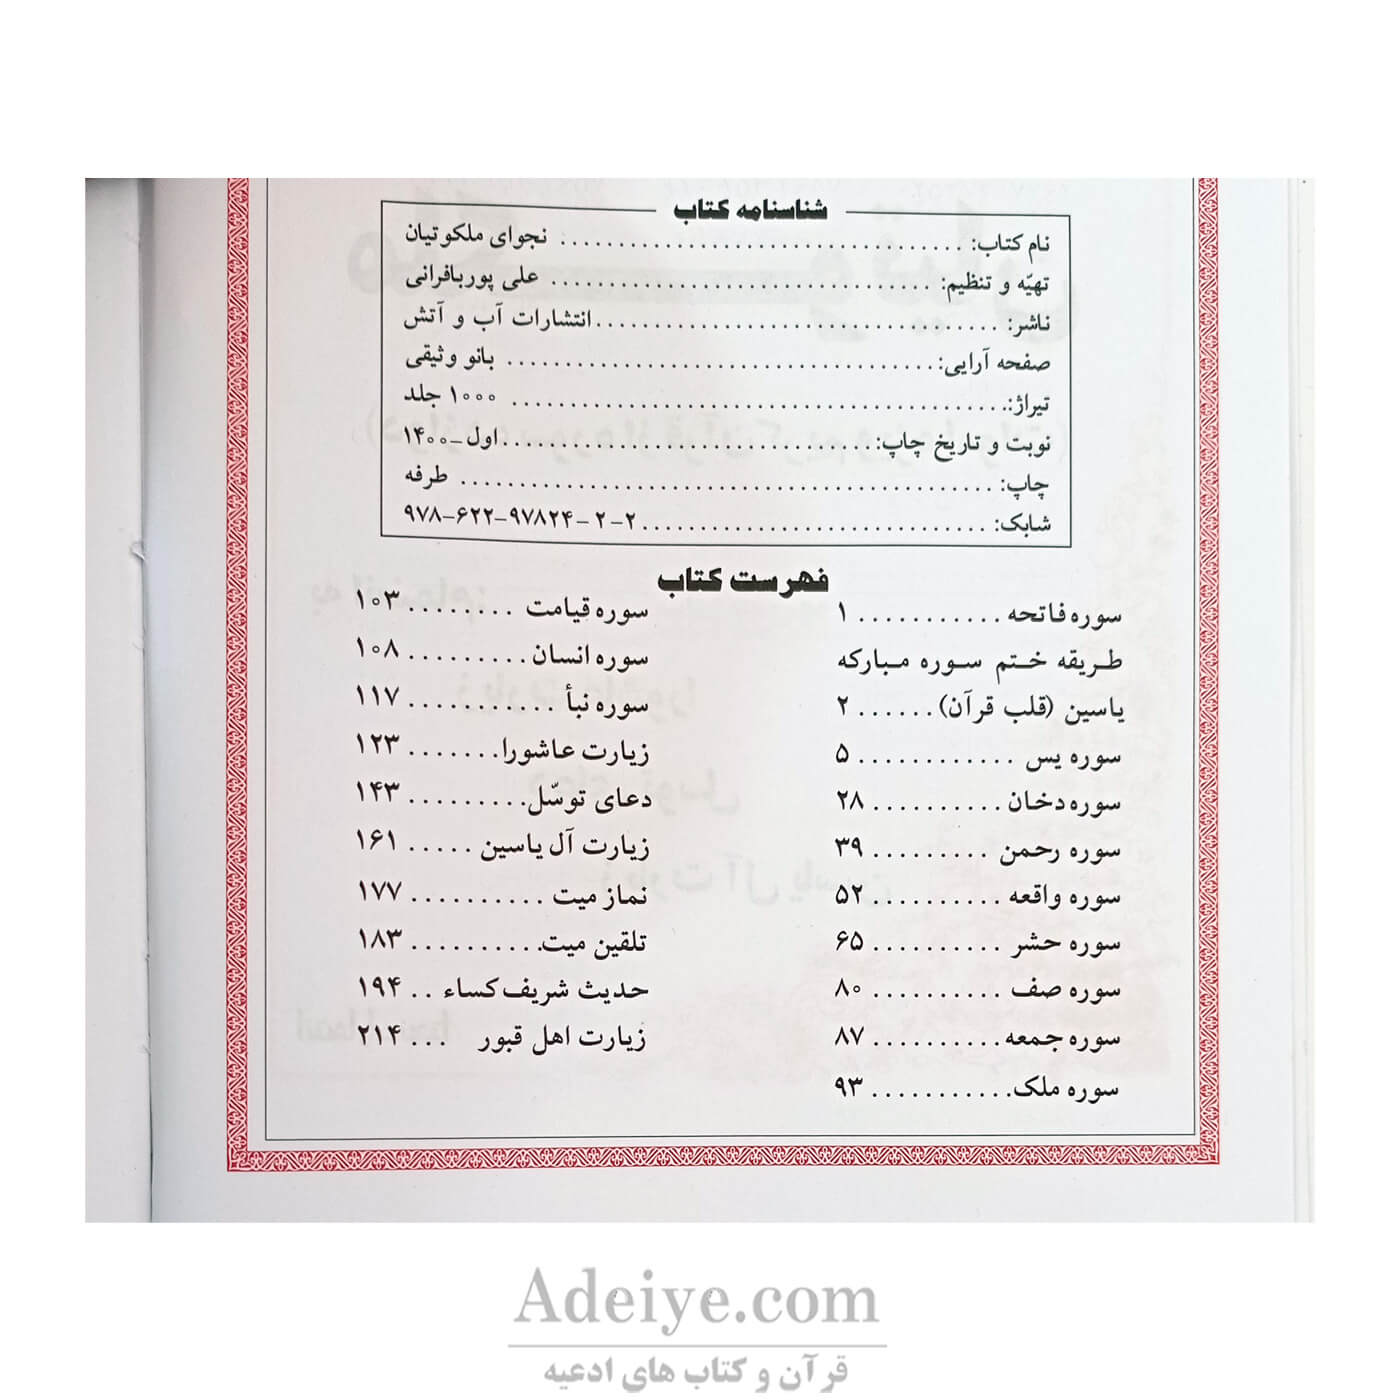 شناسنامه کتاب
نام کتاب: ................................... نجوای ملکوتیان
تهیّه و تنظیم: ................................. علی پوربافرانی
ناشر: ...................................انتشارات آب و آتش
صفحه آرایی: ..................................... بانو وثیقی
تیراژ: ........................................... ۱۰۰۰ جلد
نوبت و تاریخ چاپ: ................................اول-۱۴۰۰
چاپ: .............................................. طرفه
شابک: ..............................۹۷۸-۶۲۲-۹۷۸۲۴-۲-۲
فهرست کتاب
سوره فاتحه ........... ۱
طریقه ختم سوره مبارکه
یاسین (قلب قرآن) ...... ۲
سوره یس ............ ۵
سوره دخان .......... ۲۸
سوره رحمن ......... ۳۹
سوره واقعه .......... ۵۲
سوره حشر .......... ۶۵
سوره صف .......... ۸۰
سوره جمعه .......... ۸۷
سوره ملک ........... ۹۳
سوره قیامت ........ ۱۰۳
سوره انسان ......... ۱۰۸
سوره نبأ ........... ۱۱۷
زیارت عاشورا ....... ۱۲۳
دعای توسّل ......... ۱۴۳
زیارت آل یاسین ..... ۱۶۱
نماز میت .......... ۱۷۷
تلقین میت .......... ۱۸۳
حدیث شریف کساء .. ۱۹۴
زیارت اهل قبور ... ۲۱۴
Adeiye.com
قرآن و کتاب های ادعیه